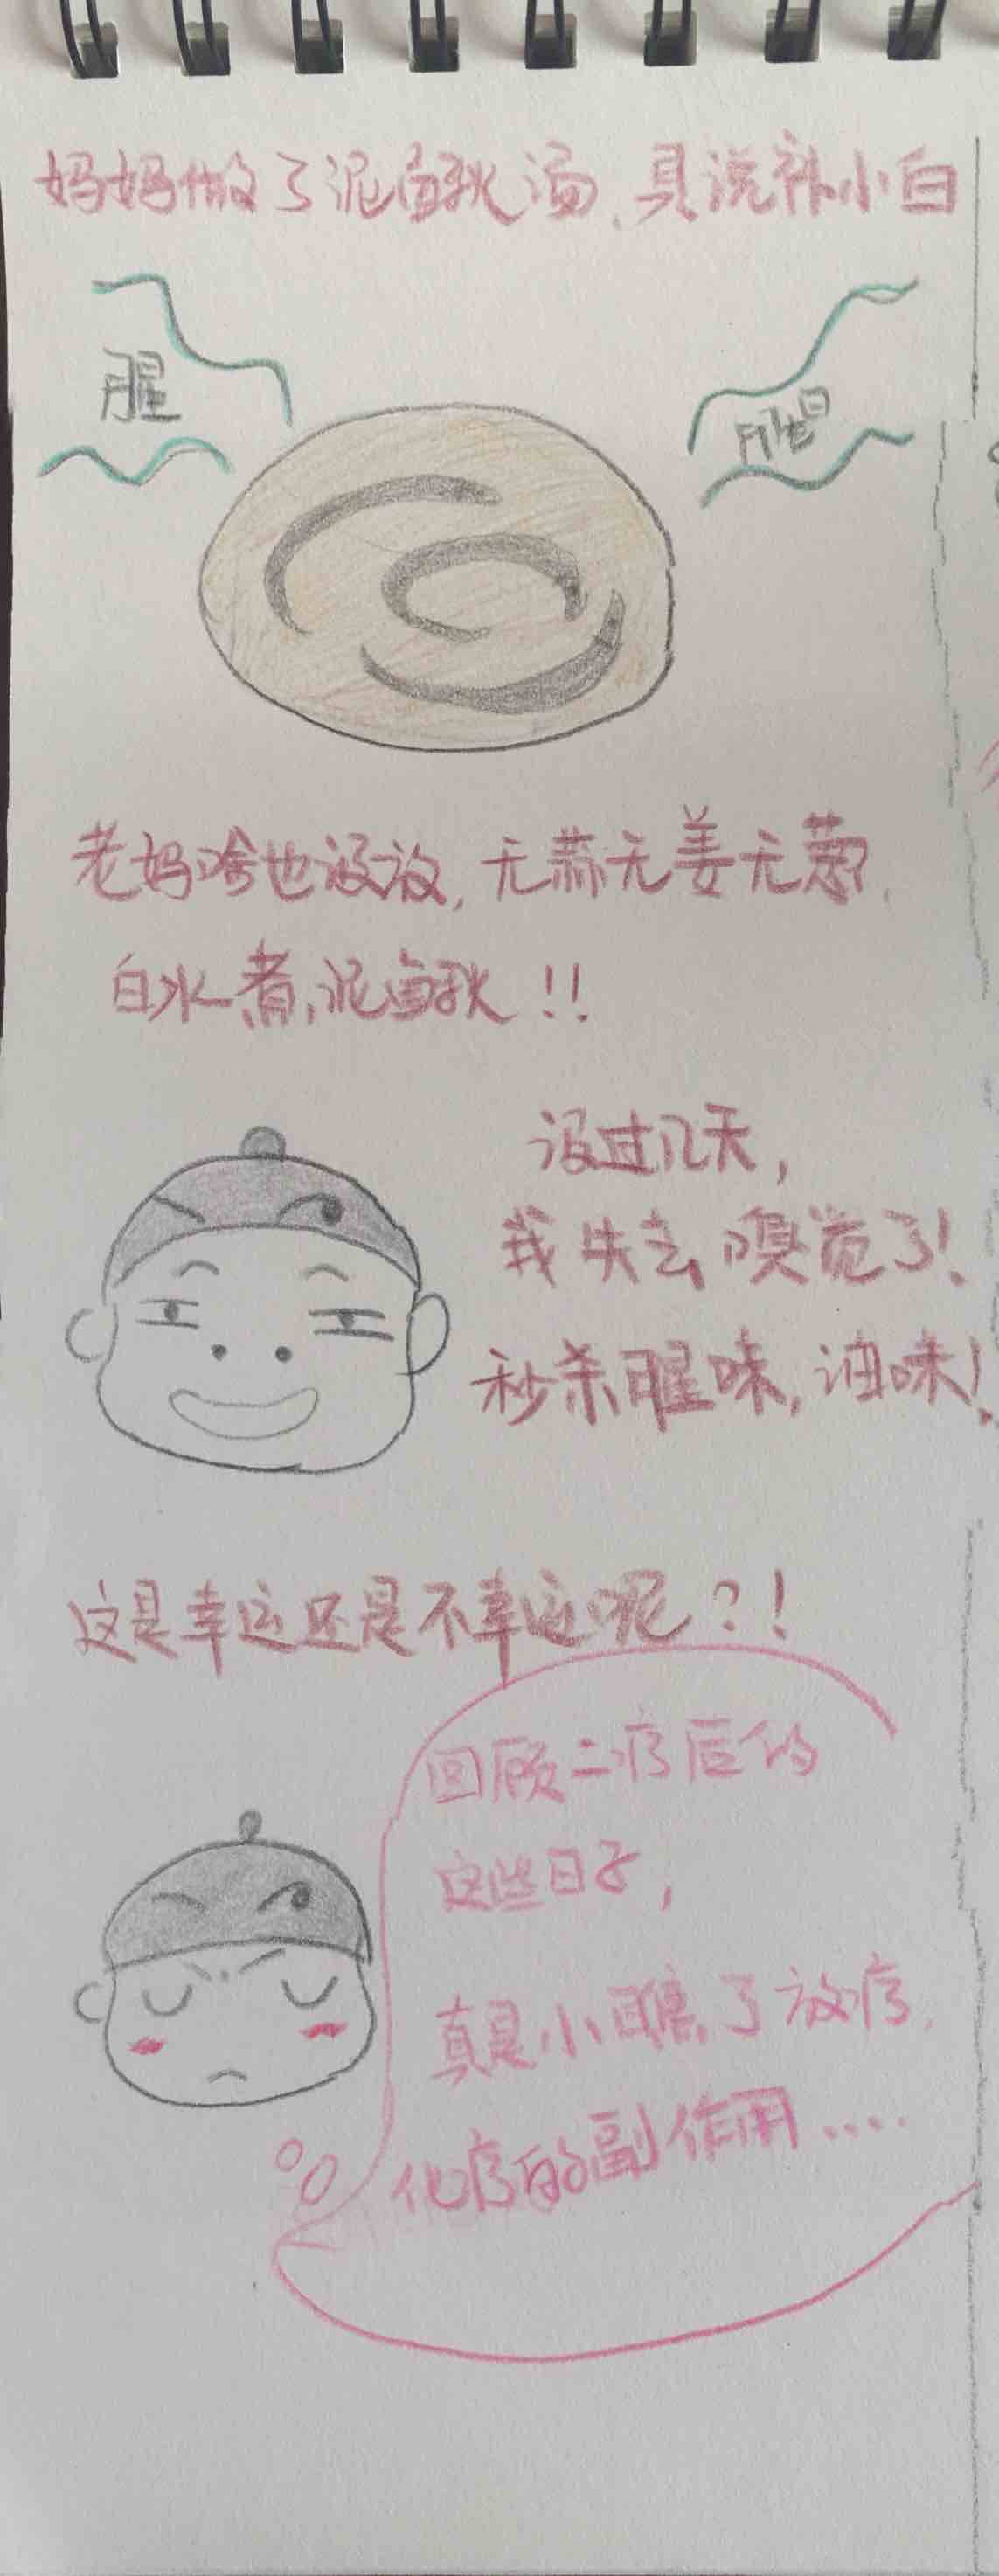 妈妈做了泥鳅汤,具说补小白
腥
腥
老妈啥也没放,无蒜无姜无葱,
白水煮泥鳅!!
没过几天,
我失去嗅觉了!
秒杀腥味,油味!
这是幸运还是不幸运呢?!
回顾二疗后的
这些日子,
真是小瞧了放疗,
化疗的副作用....